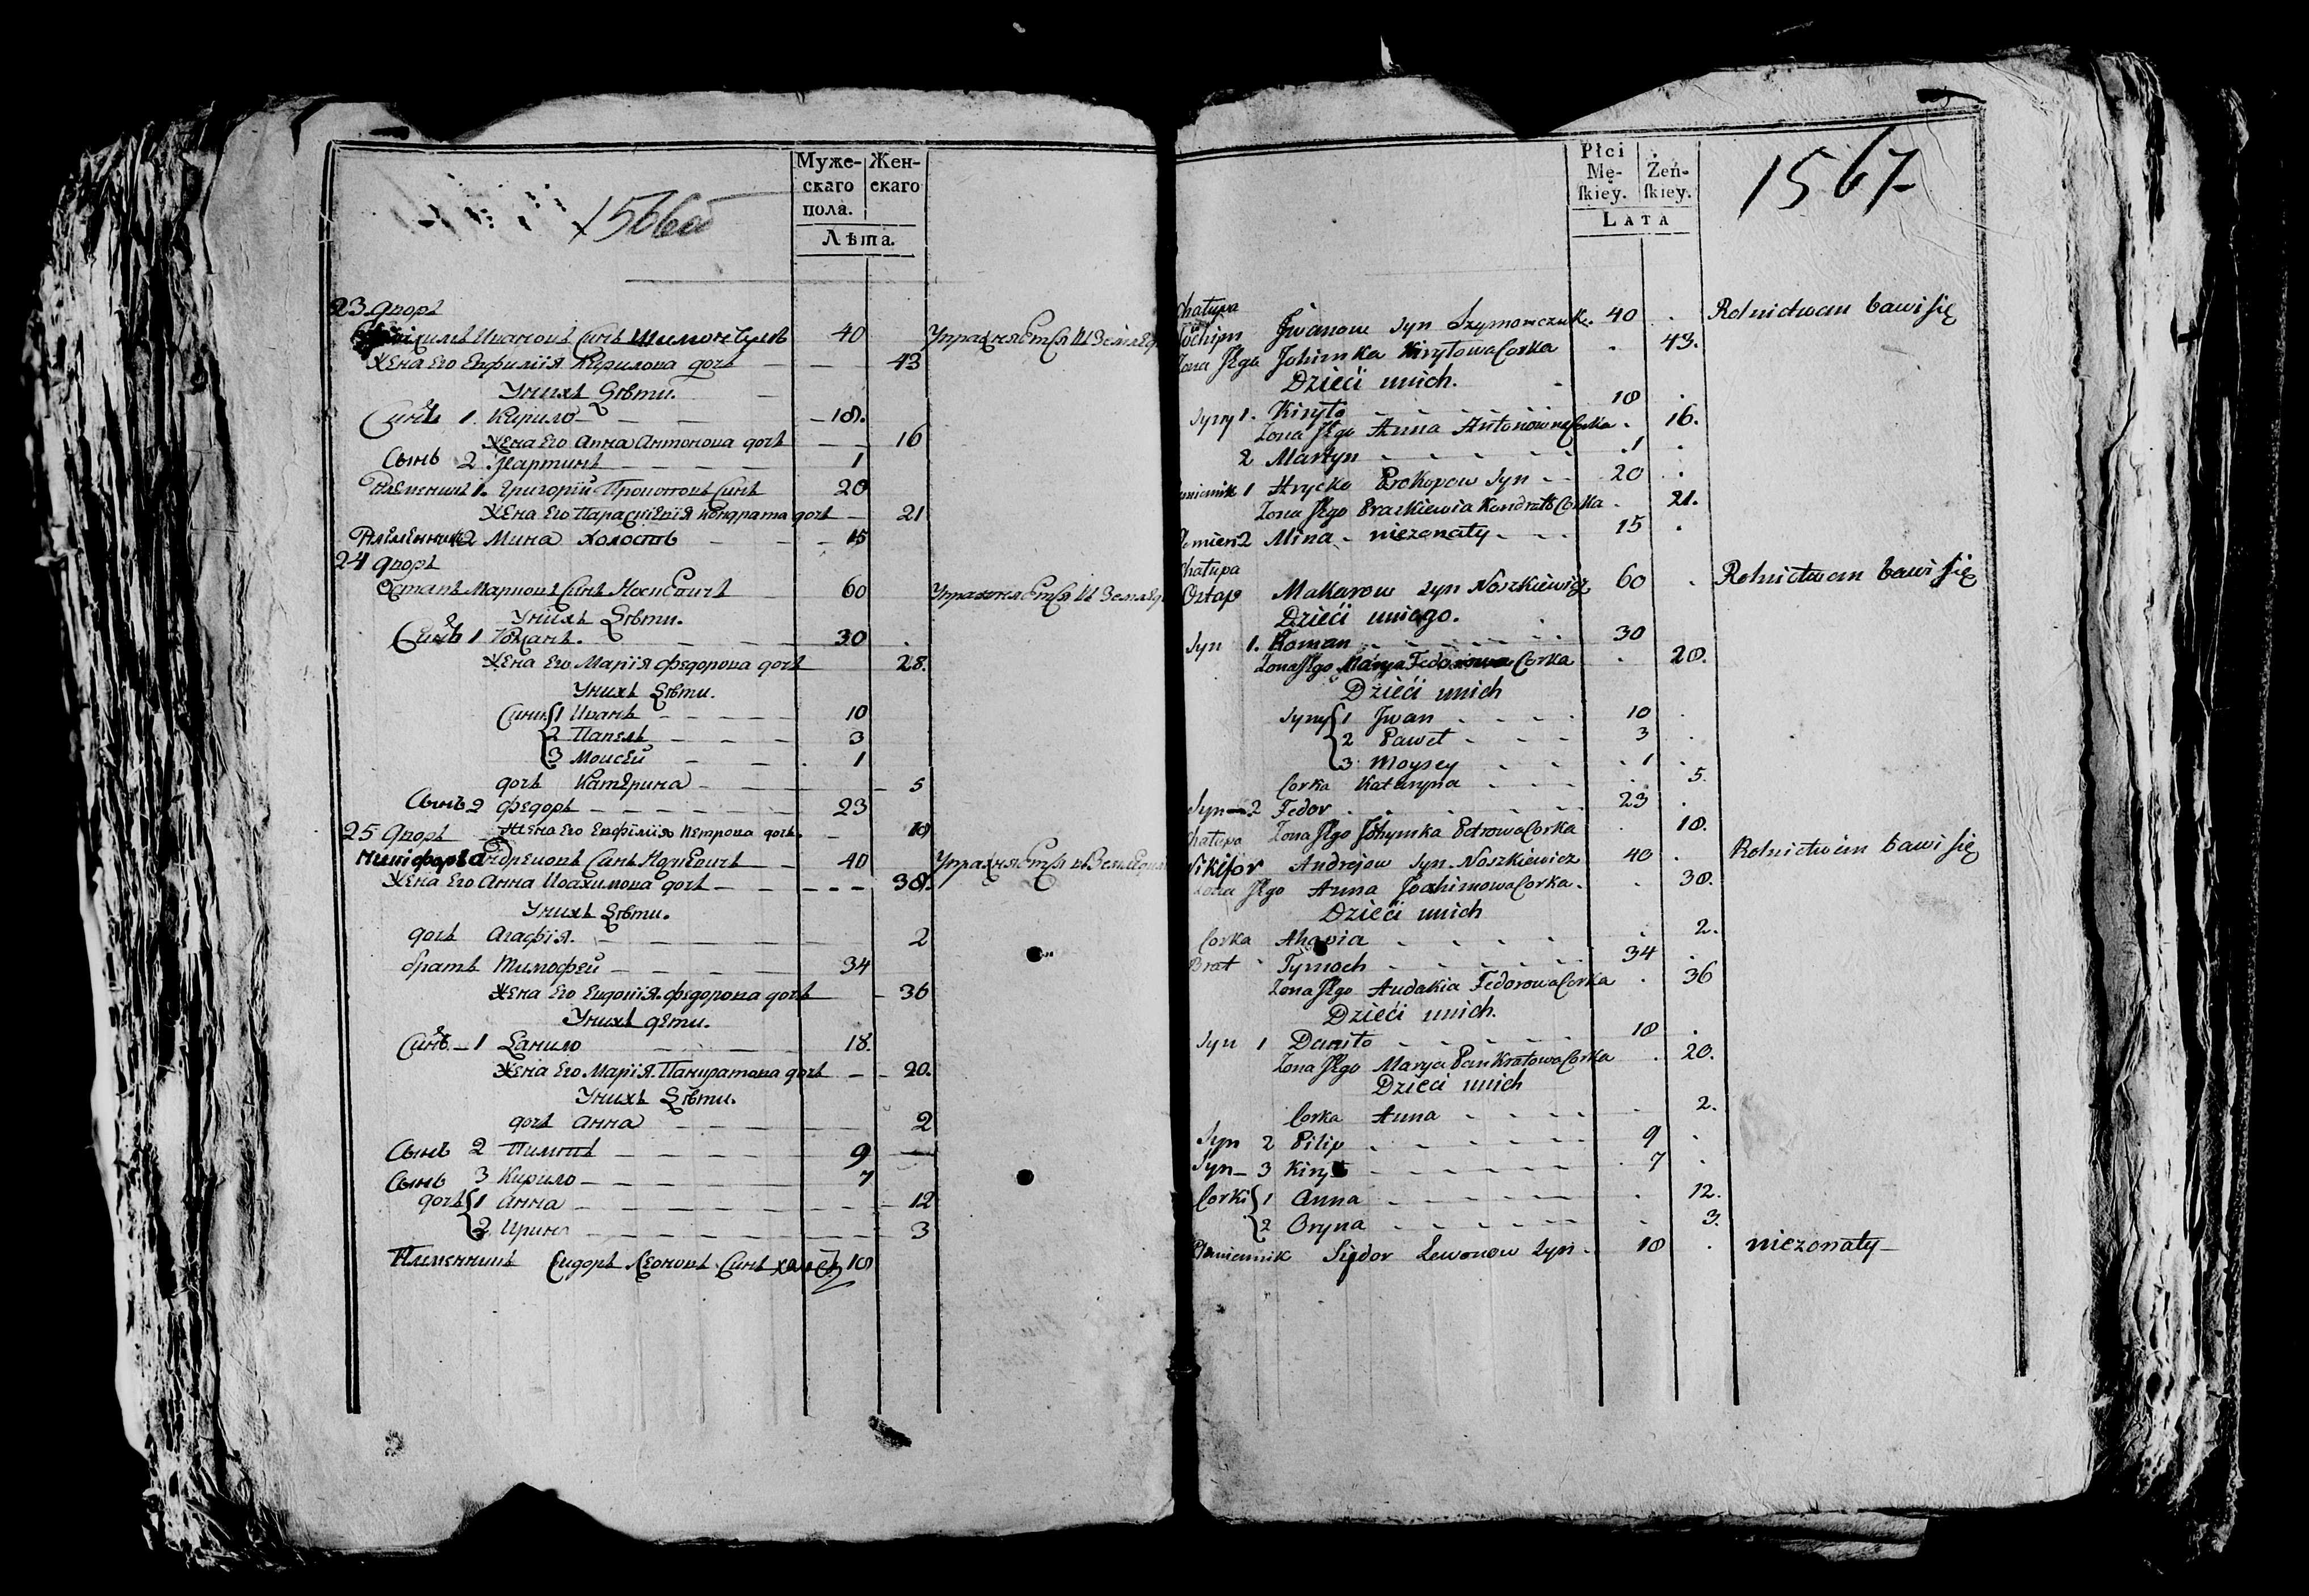 Муже-
скаго
пола.
Жен-
скаго
Лѣта.
1566об
23 дворъ
Иванов Синъ Шимончукъ 40 Упражняется въ Землед
Жена Его Евфимія Кирилова дочь 43
У нихъ Дѣти.
Синъ 1. Кирило 18.
Жена Его Анна Антонова дочь 16
Сынъ 2. Мартинъ 1
Племеникъ 1. Григорій Прокоповъ Синъ 20
Жена Его Параскіевія Кондрата дочь 21
Племенникъ 2 Мина холостъ 15
24 дворъ
Остапъ Марковъ Синъ 60 Упражняется въ Землед
У нихъ Дѣти.
Синъ 1 Романъ. 30
Жена Его Марія Федорова дочь 28.
У нихъ Дѣти.
Сини 1 Иванъ 10
2 Павелъ 3
3 Моисей 1
дочь Катерина 5
Сынъ 2 Федоръ 23
25 дворъ Жена Его Евфимія Петрова дочь. 18
Никифоръ Андреіовъ Синъ 40 Упражняется въ Землед
Жена Его Анна Иоахимова дочь 38.
У нихъ Дѣти.
дочь Агафія. 2
братъ Тимофей 34
Жена Его Евдокія Федорова дочь 36
У нихъ дети.
Синъ 1 Данило 18.
Жена Его Марія Панкратова дочь 20.
У нихъ Дѣти.
дочь Анна 2
Сынъ 2 9
Сынъ 3 Кирило 7
дочь 1 Анна 12
2. Ирина 3
Племенникъ Сидоръ Леоновъ Синъ 18
Płci
Mę-
skiey.
Żeń-
skiey.
LATA
1567
Chałupa
Jochim Jwanow syn Szymonczuk. 40 . Rolnictwem bawi się
Zona Jego Johimka Kiryłowa Corka . 43.
Dzieći unich.
Syny 1. Kiryło 18 .
Zona Jego Anna Antonowna Corka . 16.
2 Martyn . 1 .
Hrycko Prokopow Syn 20 .
Zona Jego Praskiewia Kondratt Corka . 21.
2 Mina niezonaty 15 .
Chałupa
Ostap Makarow syn Noszkiewicz 60 . Rolnictwem bawi się
Dzieći uniego.
Syn 1. Roman 30
Zona Jego Marya Fedorowa Corka . 28.
Dzieći unich
Syny 1 Jwan 10 .
2 Paweł 3 .
3 Moysey . 1 .
Corka Kataryna . 5.
Syn 2 Fedor 23 .
Chałupa Zona Jego Johymka Petrowa Corka . 18.
Nikifor Andrejow Syn Noszkiewicz 40 . Rolnictwem bawi się
Zona Jego Anna Joahimowa Corka . . 38.
Dzieći unich
Corka Ahapia . 2.
Brat Tymoch 34 .
Zona Jego Audakia Fedorowa Corka . 36
Dzieći unich.
Syn 1 Daniło 18 .
Zona Jego Marya Pankratowa Corka . 20.
Dzieći unich
Corka Anna . 2.
Syn 2 Pilip 9 .
Syn 3 7 .
Corki 1 Anna . 12.
2 Oryna . 3.
Plemiennik Sydor Lewonow Syn 18 . niezonaty